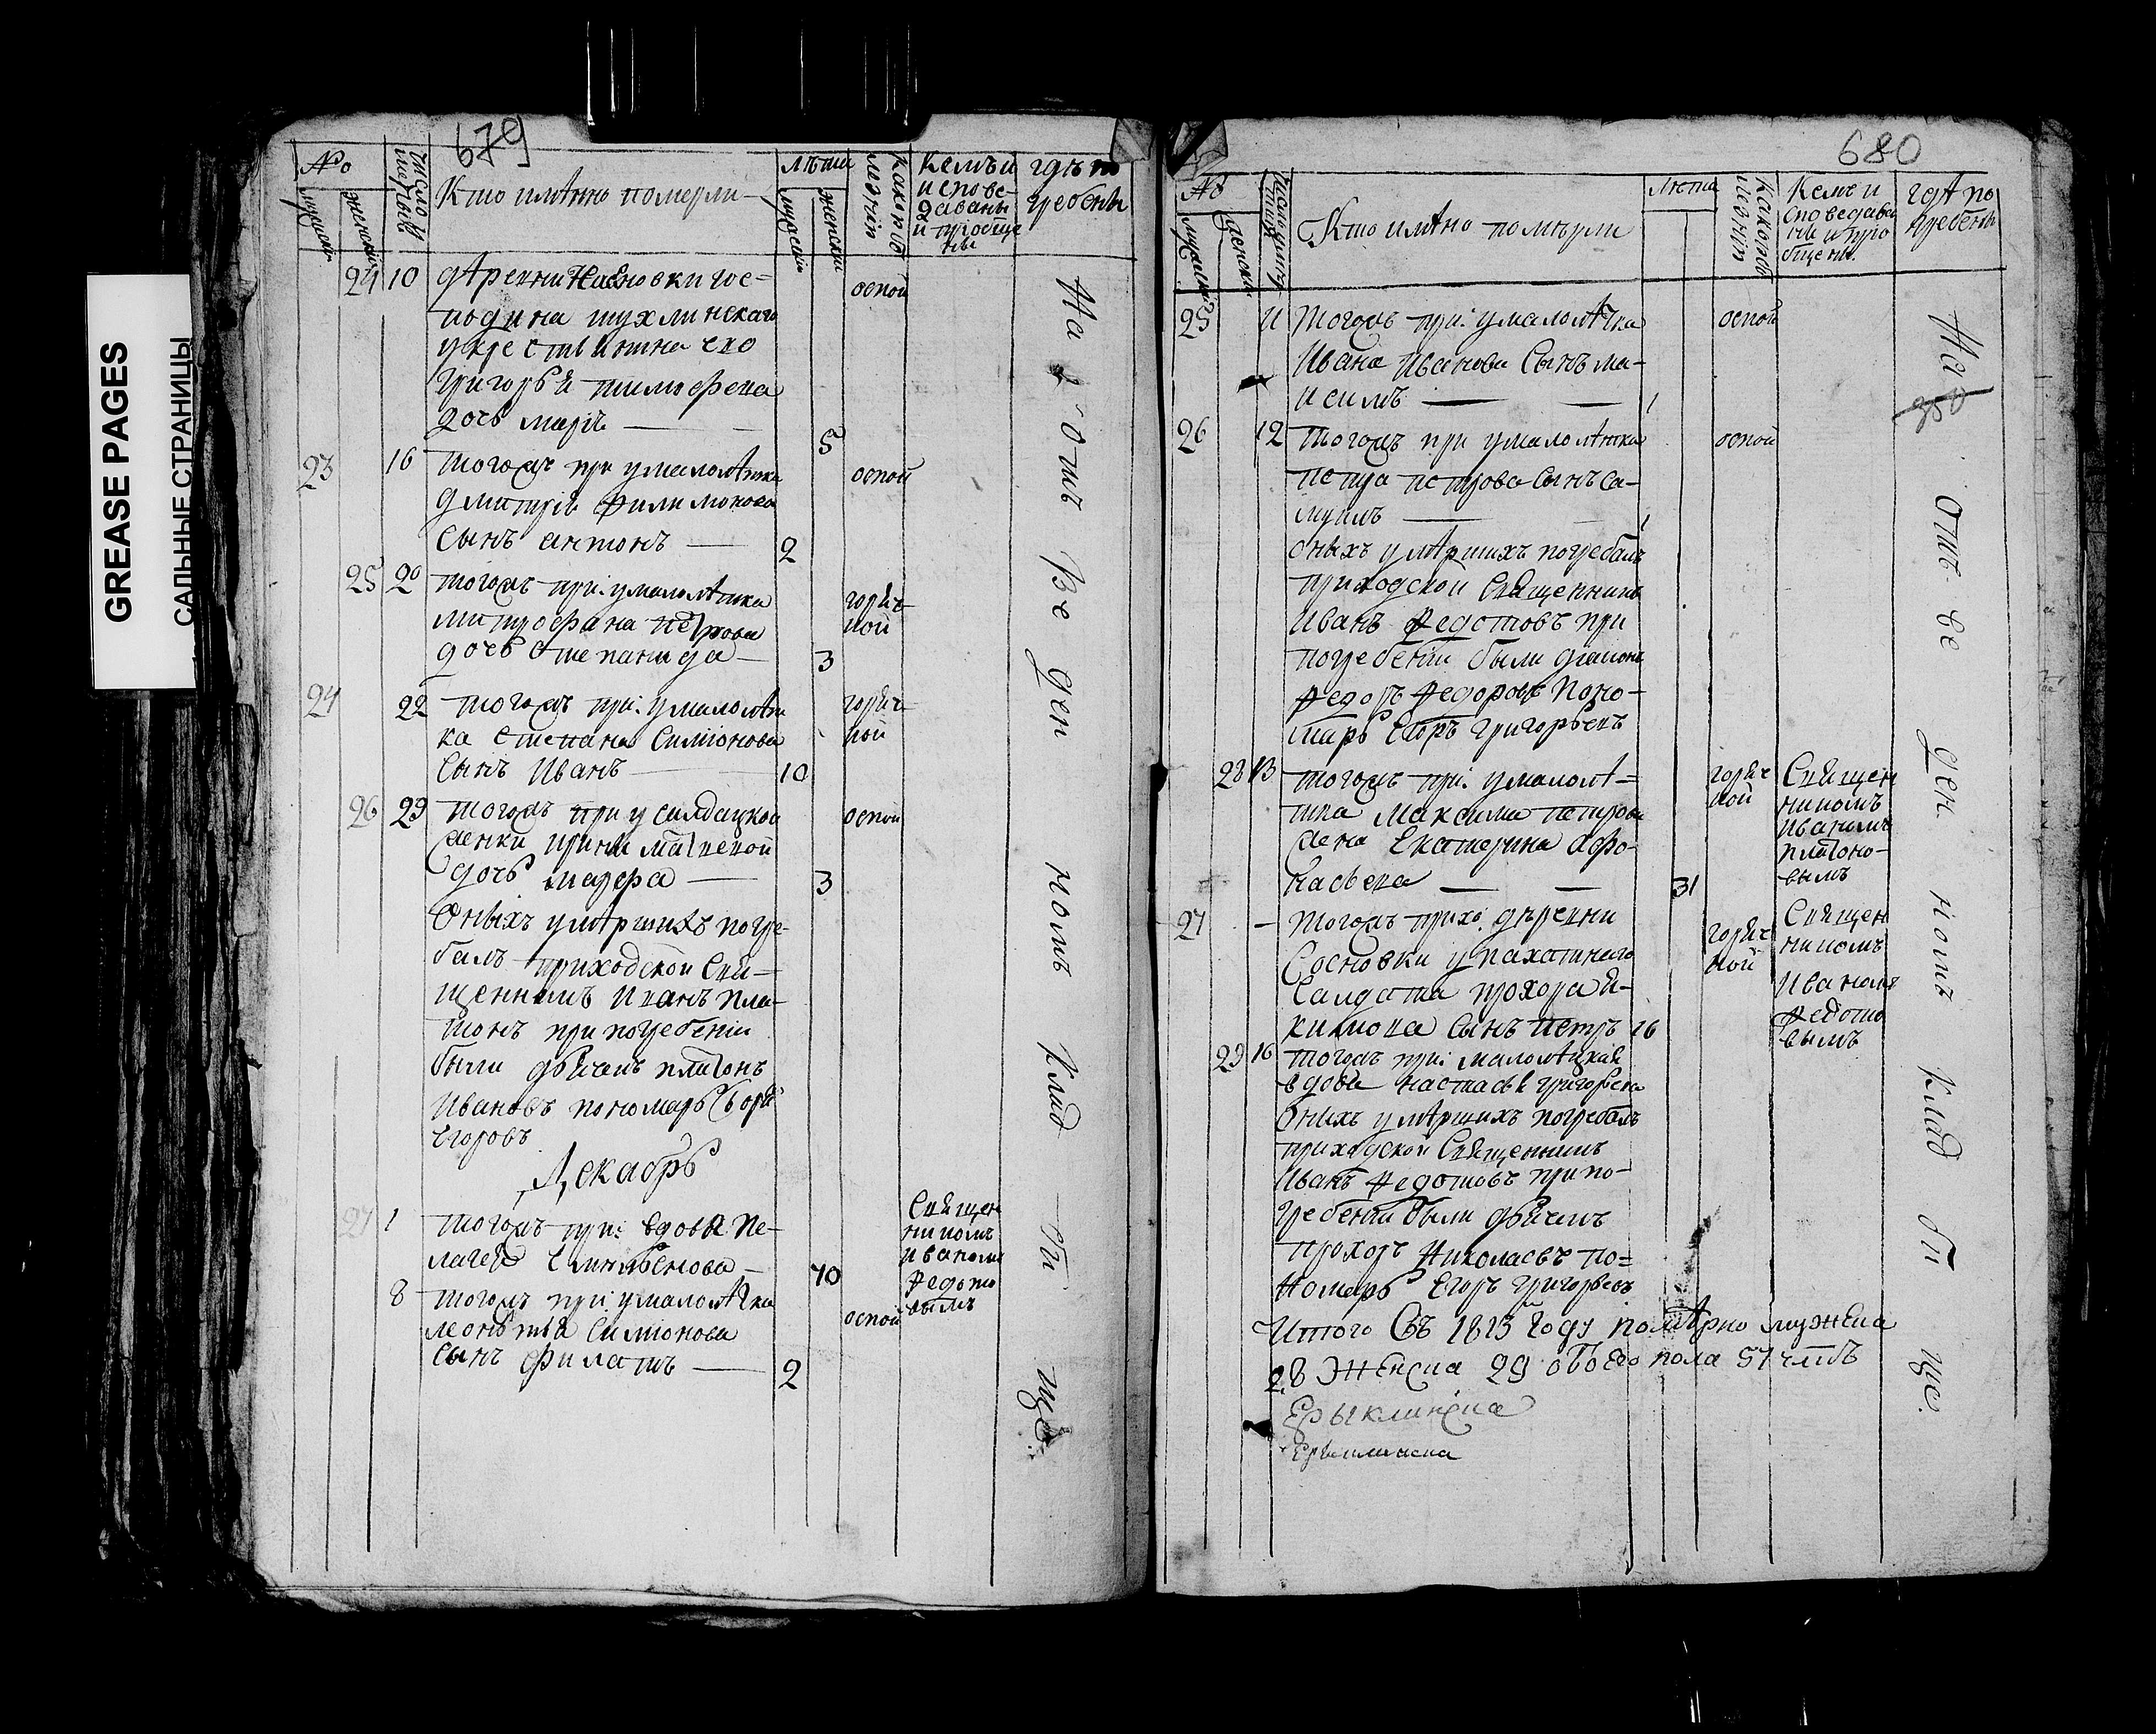 GREASE PAGES
САЛЬНЫЕ СТРАНИЦЫ
679
№
мужескій
женскій
число мертвых
Кто имѣнно померли
лѣта
мужескій
женскій
какою болезнію
Кемъ и
испове-
даваны
и приобще
ны
гдѣ по
гребены
24 10 дѣревни
гос-
подина тухлинскаго
у крестьянина
Григорья тимофеева
дочь марія 5
оспой
23 16 тогожъ при у малолѣтка
дмитрія филимонова
сынъ антонъ 2
оспой
25 20 тогожъ при: у малолѣтка
митрофана петрова
дочь степанида 3
горяч-
кой
24 22 тогожъ при: у малолѣт
ка степана симіонова
сынъ Иванъ 10
горяч-
кой
26 29 тогожъ при у салдацкой
женки ирины матвевой
дочь 3
оспой
Оныхъ умѣршихъ погре-
балъ приходской Свя-
щенникъ Иванъ пла-
тонъ при погребеніи
были дьячекъ платонъ
Ивановъ пономарь
егоровъ
Декабрь
27 1 тогожъ при: вдова Пе-
лагея 70
Священ
никомъ
иваномъ
федото
вымъ
8 тогожъ при: у малолѣтка
леонтья симіонова
сынъ филатъ 2
оспой
На отве ден номъ клад би ще.
680
№
мужескій
женскій
Кто имѣно помѣрли
лѣта
какою болезнію
Кемъ и
споведава
ны и прио
бщены.
гдѣ по
гребены
25 11 тогожъ при: у малолѣтка
Ивана Иванова Сынъ ма-
исимъ 1
оспой
26 12 тогожъ при у малолѣтка
петра петрова сынъ са-
муилъ 1
оспой
оныхъ умѣршихъ погребалъ
приходской Священникъ
Иванъ Федотовъ при
погребеніи были діаконъ
Федоръ Федоровъ Поно-
марь Егоръ Григорьевъ
28 13 тогожъ при: у малолѣ-
тка максима петрова
жена Екатерина Афо-
насьева 31
горяч
кой
Священ
никомъ
Иваномъ
платоно-
вымъ
27 - тогожъ прихо: дѣревни
Сосновки у пахатнаго
салдата прохора Я-
кимова сынъ петръ 16
горяч
кой
Священ
никомъ
Иваномъ
Федото
вымъ
29 16 тогожъ при: малолѣцкая
вдова настасья григорьева
Оныхъ умѣршихъ погребалъ
приходской Священникъ
Иванъ Федотовъ при по-
гребеніи были дьячекъ
прохоръ Николаевъ по-
номарь Егоръ Григорьевъ
На отве ден номъ клад би ще.
Итого Въ 1813 году помѣрло мужеска
28 Женска 29 обоего пола 57
Ерыклинска
Ерыклинска